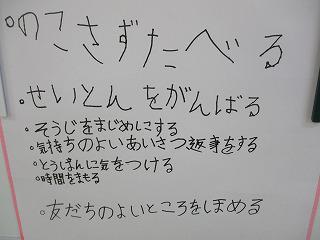 ・のこさずたべる
・せいとんをがんばる
・そうじをまじめにする
・気持ちのよいあいさつ返事をする
・とうばんに気をつける
・時間をまもる
・友だちのよいところをほめる